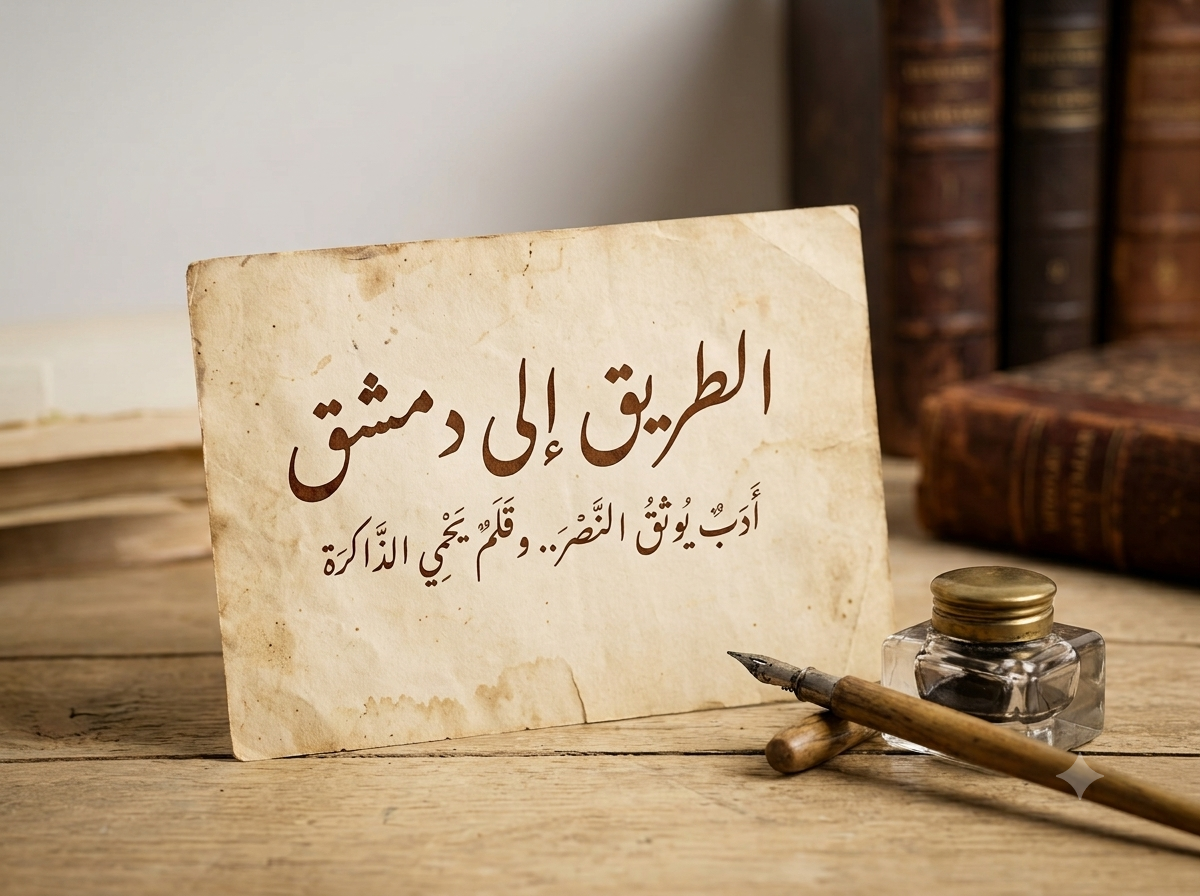 الطريق إلى دمشق
أَدَبٌ يُوثقُ النَّصْرَ.. وقَلَمٌ يَحْمِي الذَّاكرَة